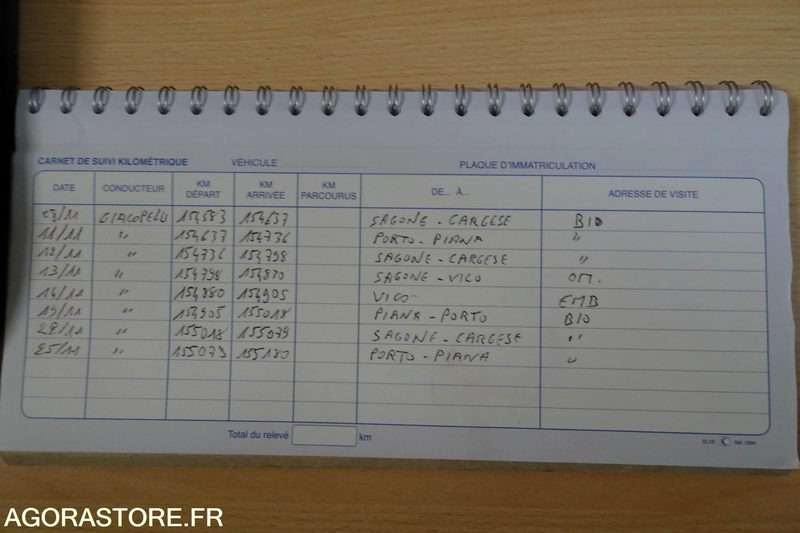 CARNET DE SUIVI KILOMÉTRIQUE VÉHICULE PLAQUE D'IMMATRICULATION
DATE CONDUCTEUR KM DÉPART KM ARRIVÉE KM PARCOURUS DE... À... ADRESSE DE VISITE
154583 154637 SAGONE - CARGESE BIO
11/11 " 154637 154736 PORTO - PIANA "
12/11 " 154736 154798 SAGONE - CARGESE "
13/11 " 154798 SAGONE - VICO OM.
14/11 " 154880 154905 VICO EMB
19/11 " 154905 155018 PIANA - PORTO BIO
" 155018 155079 SAGONE - CARGESE "
25/11 " 155079 155180 PORTO - PIANA "
Total du relevé km
ELVE
AGORASTORE.FR